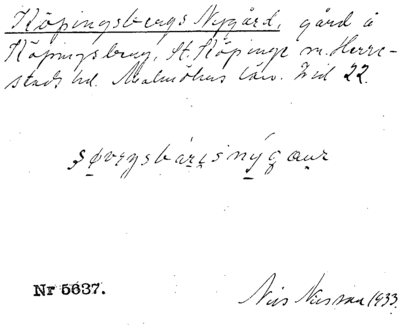 Köpingsbergs Nygård, gård å
Köpingsberg, St. Köpinge sn. Herre-
stads hd. Malmöhus län. Zid 22.
şøvεŋsbárisnýgaur
Nr 5637.
Nils Nilsson 1933.